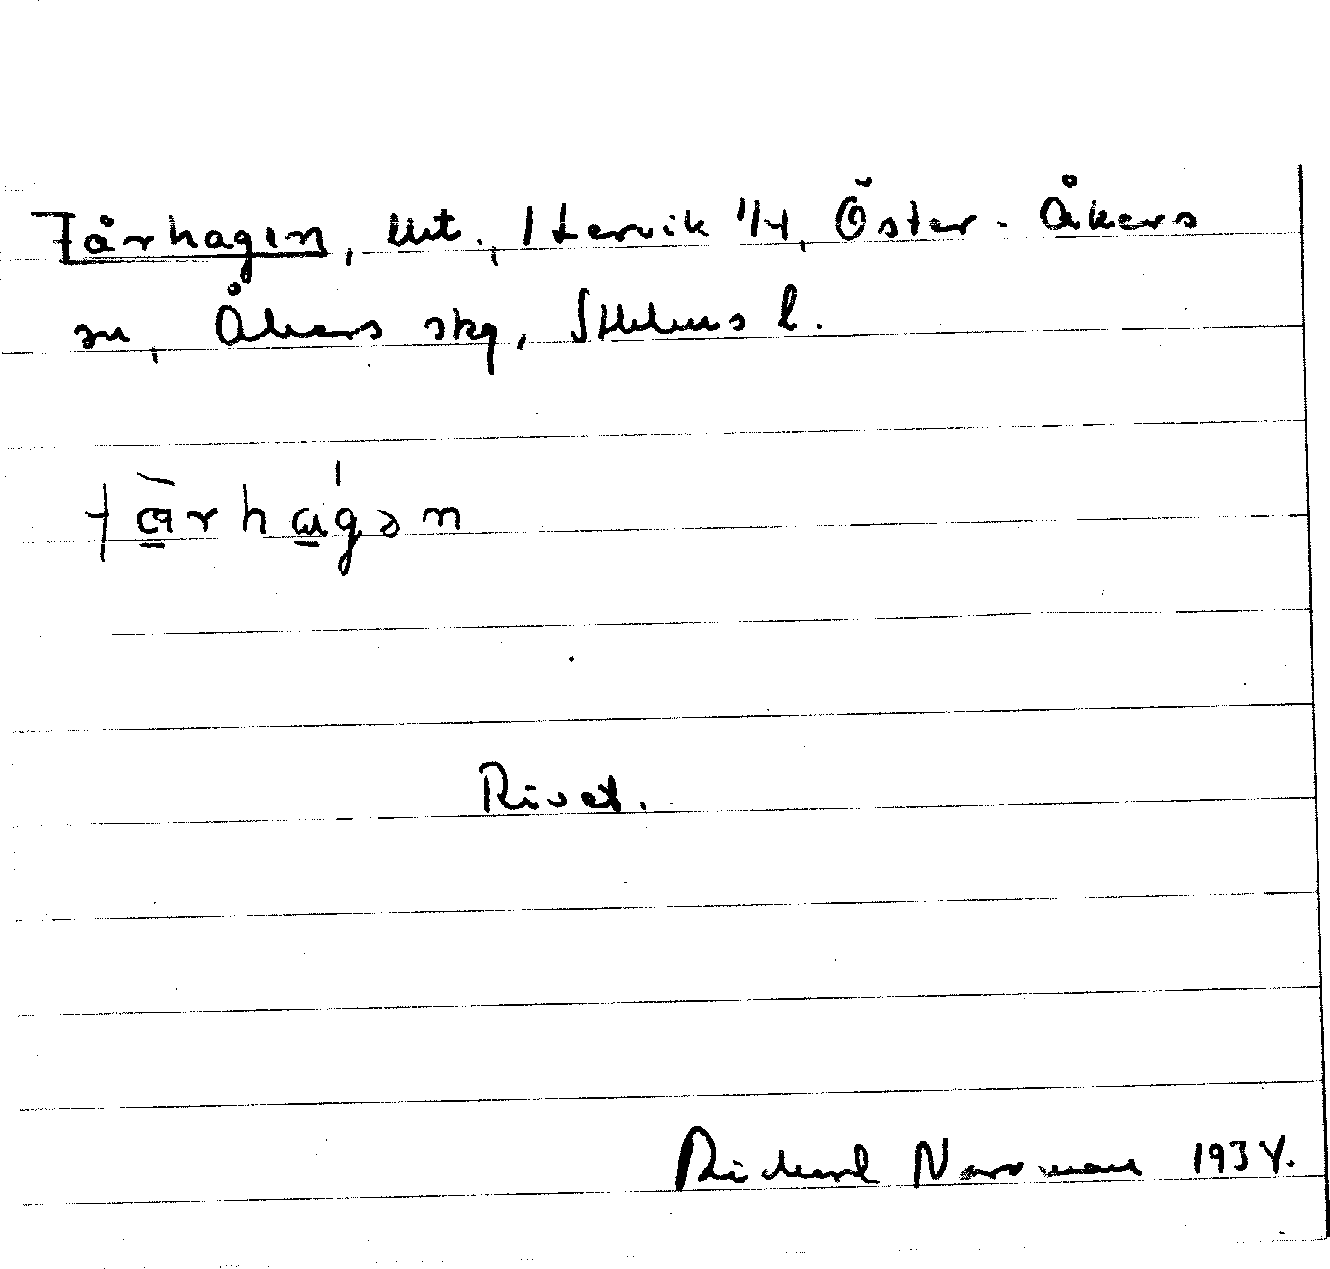 Fårhagen, lht., Hervik 1/4, Öster-Åkers
sn, Åkers skg, Sthlms l.
fårhagən
Rivet.
Richard Norrman 1934.